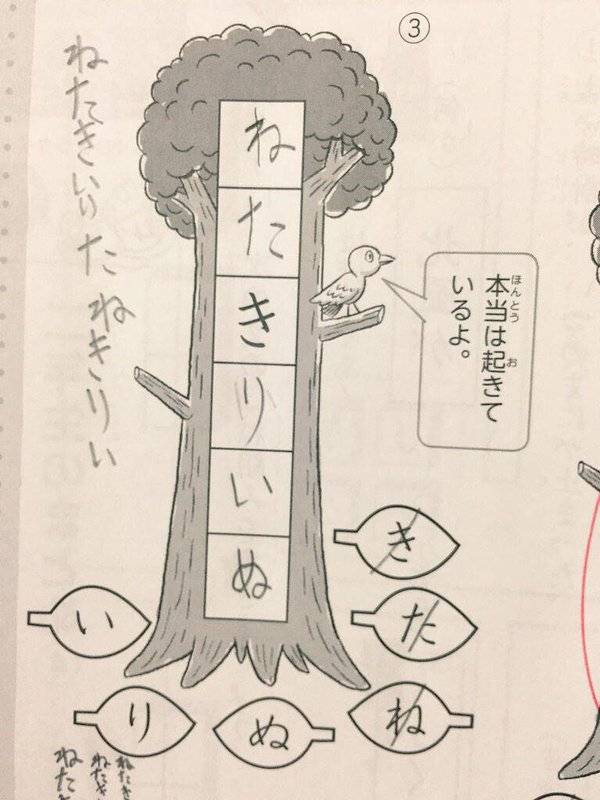 ③
ねたきいり
た
ねきりい
ね
た
き
り
い
ぬ
本当は起きて
ほんとう
お
いるよ。
き
た
ね
ぬ
り
い
ねたき
ねたき
ねた